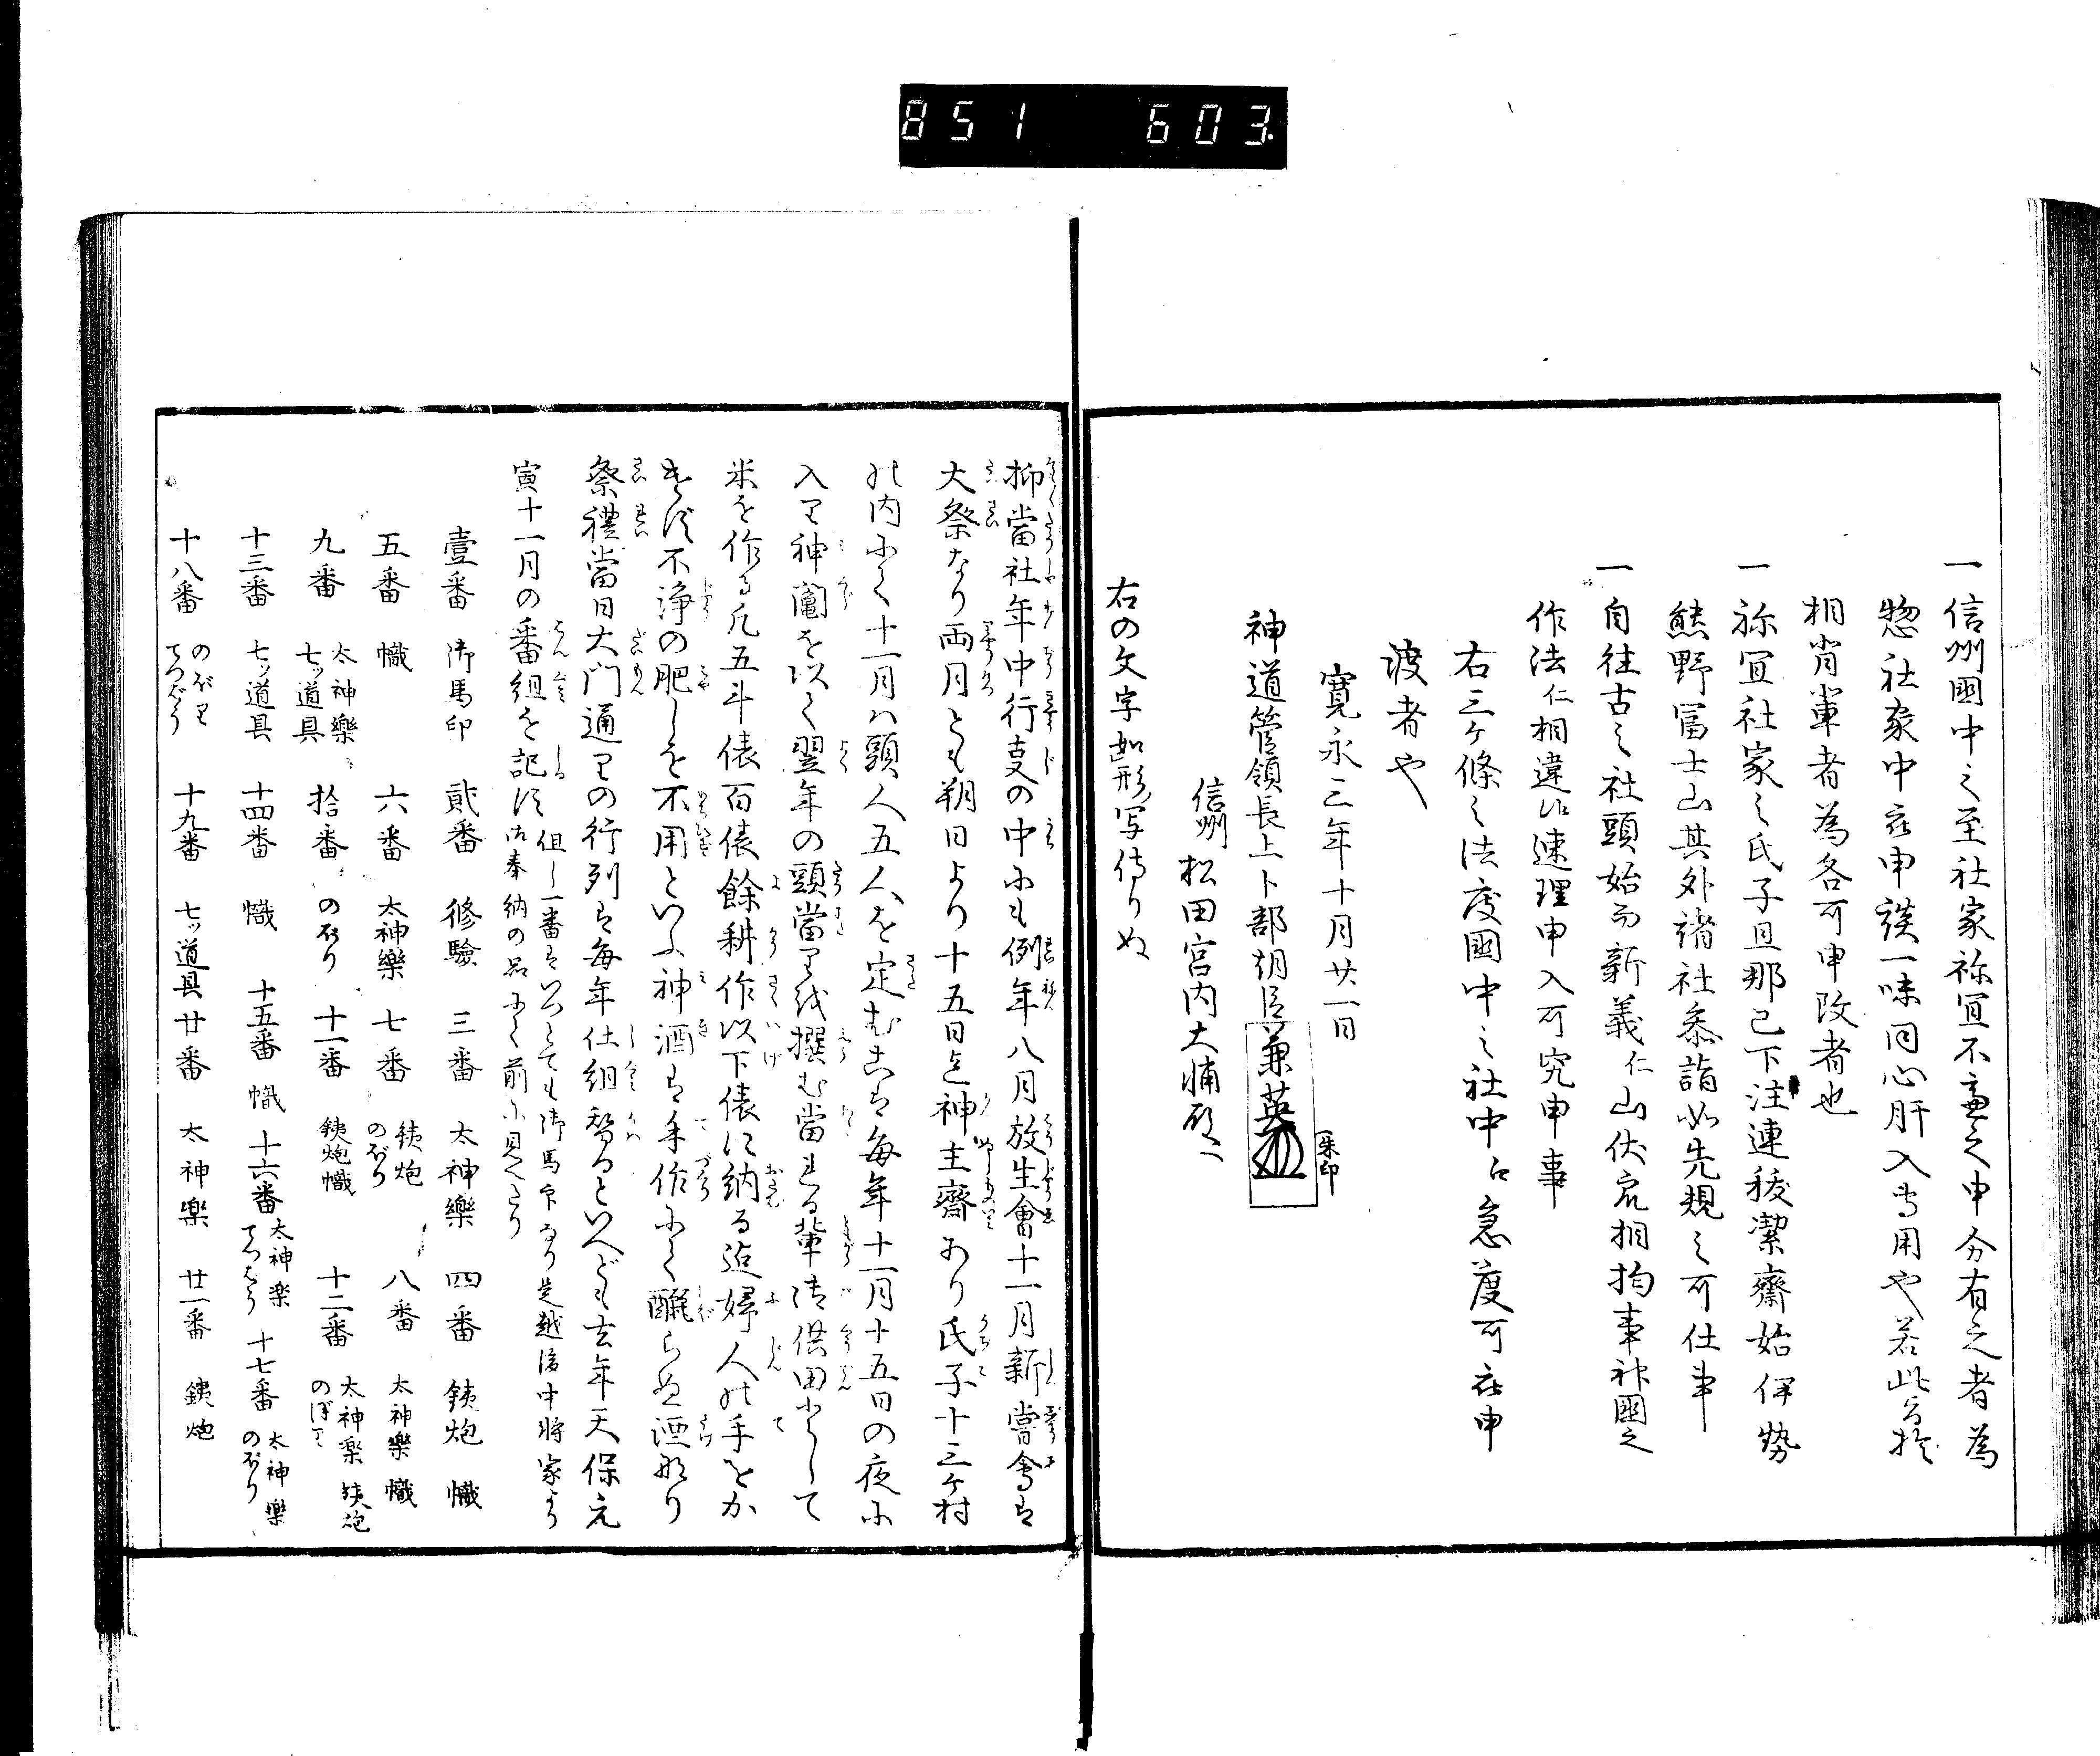 851 603
一信州國中之至社家祢冝不斎之申分有之者為
惣社家中衆申談一味同心肝入専用や若此旨於
相背輩者為各可申改者也
一祢冝社家之氏子旦那已下注連秡潔齋始伊勢
熊野冨士山其外諸社参詣如先規之可仕事
一自往古之社頭始而新義仁山伏衆相拘事神國之
作法仁相違候速理申入可究申事
右三ケ條之法度國中之社中江急度可在申
渡者や
寛永三年十月廿一日
神道管領長上卜部朝臣兼英 朱印
信州松田宮内大輔殿
右の文字如形写侍りぬ
抑當社年中行支の中にも例年八月放生會十一月新嘗會は
大祭なり両月とも朔日より十五日迄神主齋あり氏子十三ケ村
の内にて十一月ハ頭人五人を定む古は毎年十一月十五日の夜に
入り神䦰を以て翌年の頭當りを撰む當れる輩御供田として
米を作る凡五斗俵百俵餘耕作以下俵に納る迄婦人の手をか
けず不浄の肥しを不用といふ神酒は手作にて醸らぬ酒なり
祭禮當日大門通りの行列は毎年仕組替るといへども去年天保元
寅十一月の番組を記す 但し一番はいつとても御馬印なり是越後中将家より
御奉納の品にて前に見へたり
壹番 御馬印 貳番 修驗 三番 太神樂 四番 銕炮 幟
五番 幟 六番 太神樂 七番 銕炮 のぼり 八番 太神樂 幟
九番 太神樂 七ツ道具 拾番 のぼり 十一番 銕炮幟 十二番 太神楽 銕炮 のぼり
十三番 七ツ道具 十四番 幟 十五番 幟 十六番 太神楽 てつぽう 十七番 太神樂 のぼり
十八番 のぼり てつぽう 十九番 七ツ道具 廿番 太神楽 廿一番 銕炮